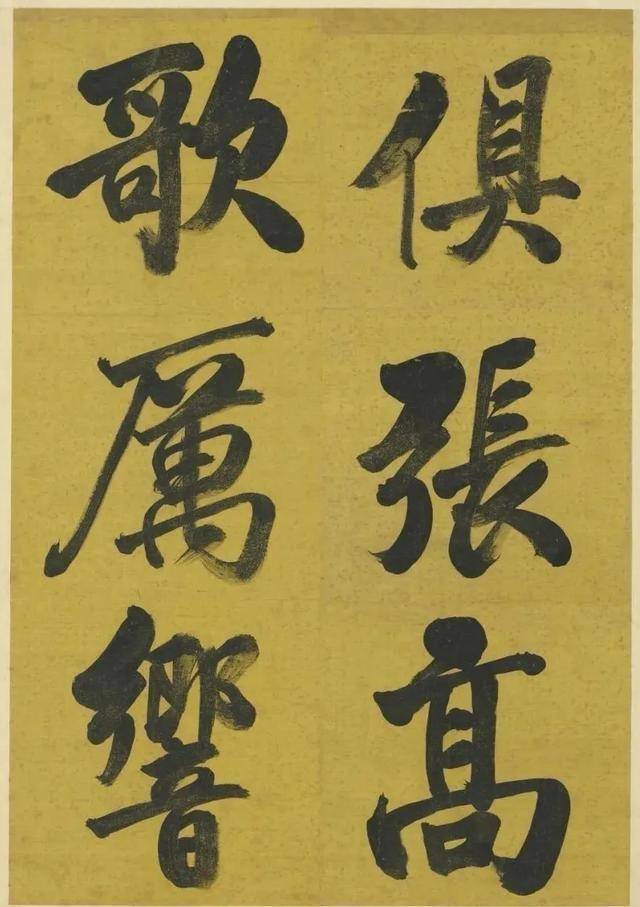 俱張高
歌厲響